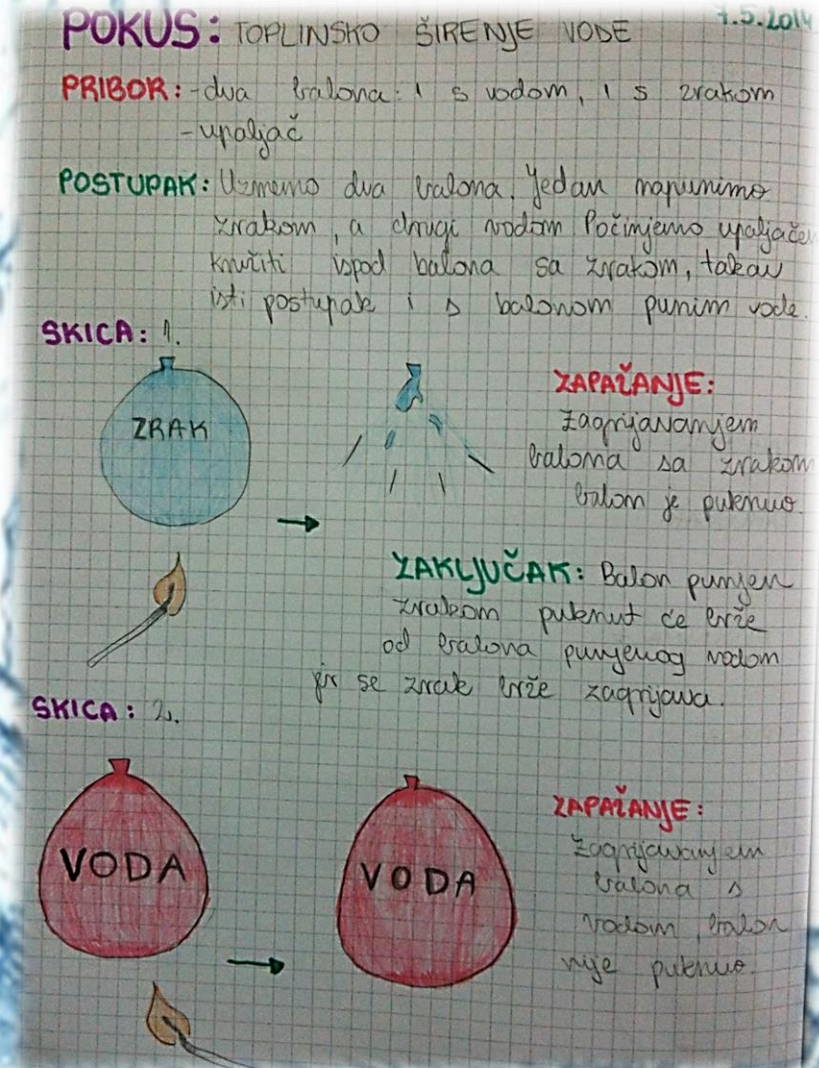 POKUS: TOPLINSKO ŠIRENJE VODE
7.5.2014
PRIBOR: -dva balona: 1 s vodom, 1 s zrakom
-upaljač
POSTUPAK: Uzmemo dva balona. Jedan napunimo
zrakom, a drugi vodom Počinjemo upaljače
kružiti ispod balona sa zrakom, takav
isti postupak i s balonom punim vode.
SKICA: 1.
ZRAK
ZAPAŽANJE:
Zagrijavanjem
balona sa zrakom
balon je puknuo.
ZAKLJUČAK: Balon punjen
zrakom puknut će brže
od balona punjenog vodom
jer se zrak brže zagrijava.
SKICA: 2.
VODA
VODA
ZAPAŽANJE:
Zagrijavanjem
balona s
vodom, balon
nije puknuo.